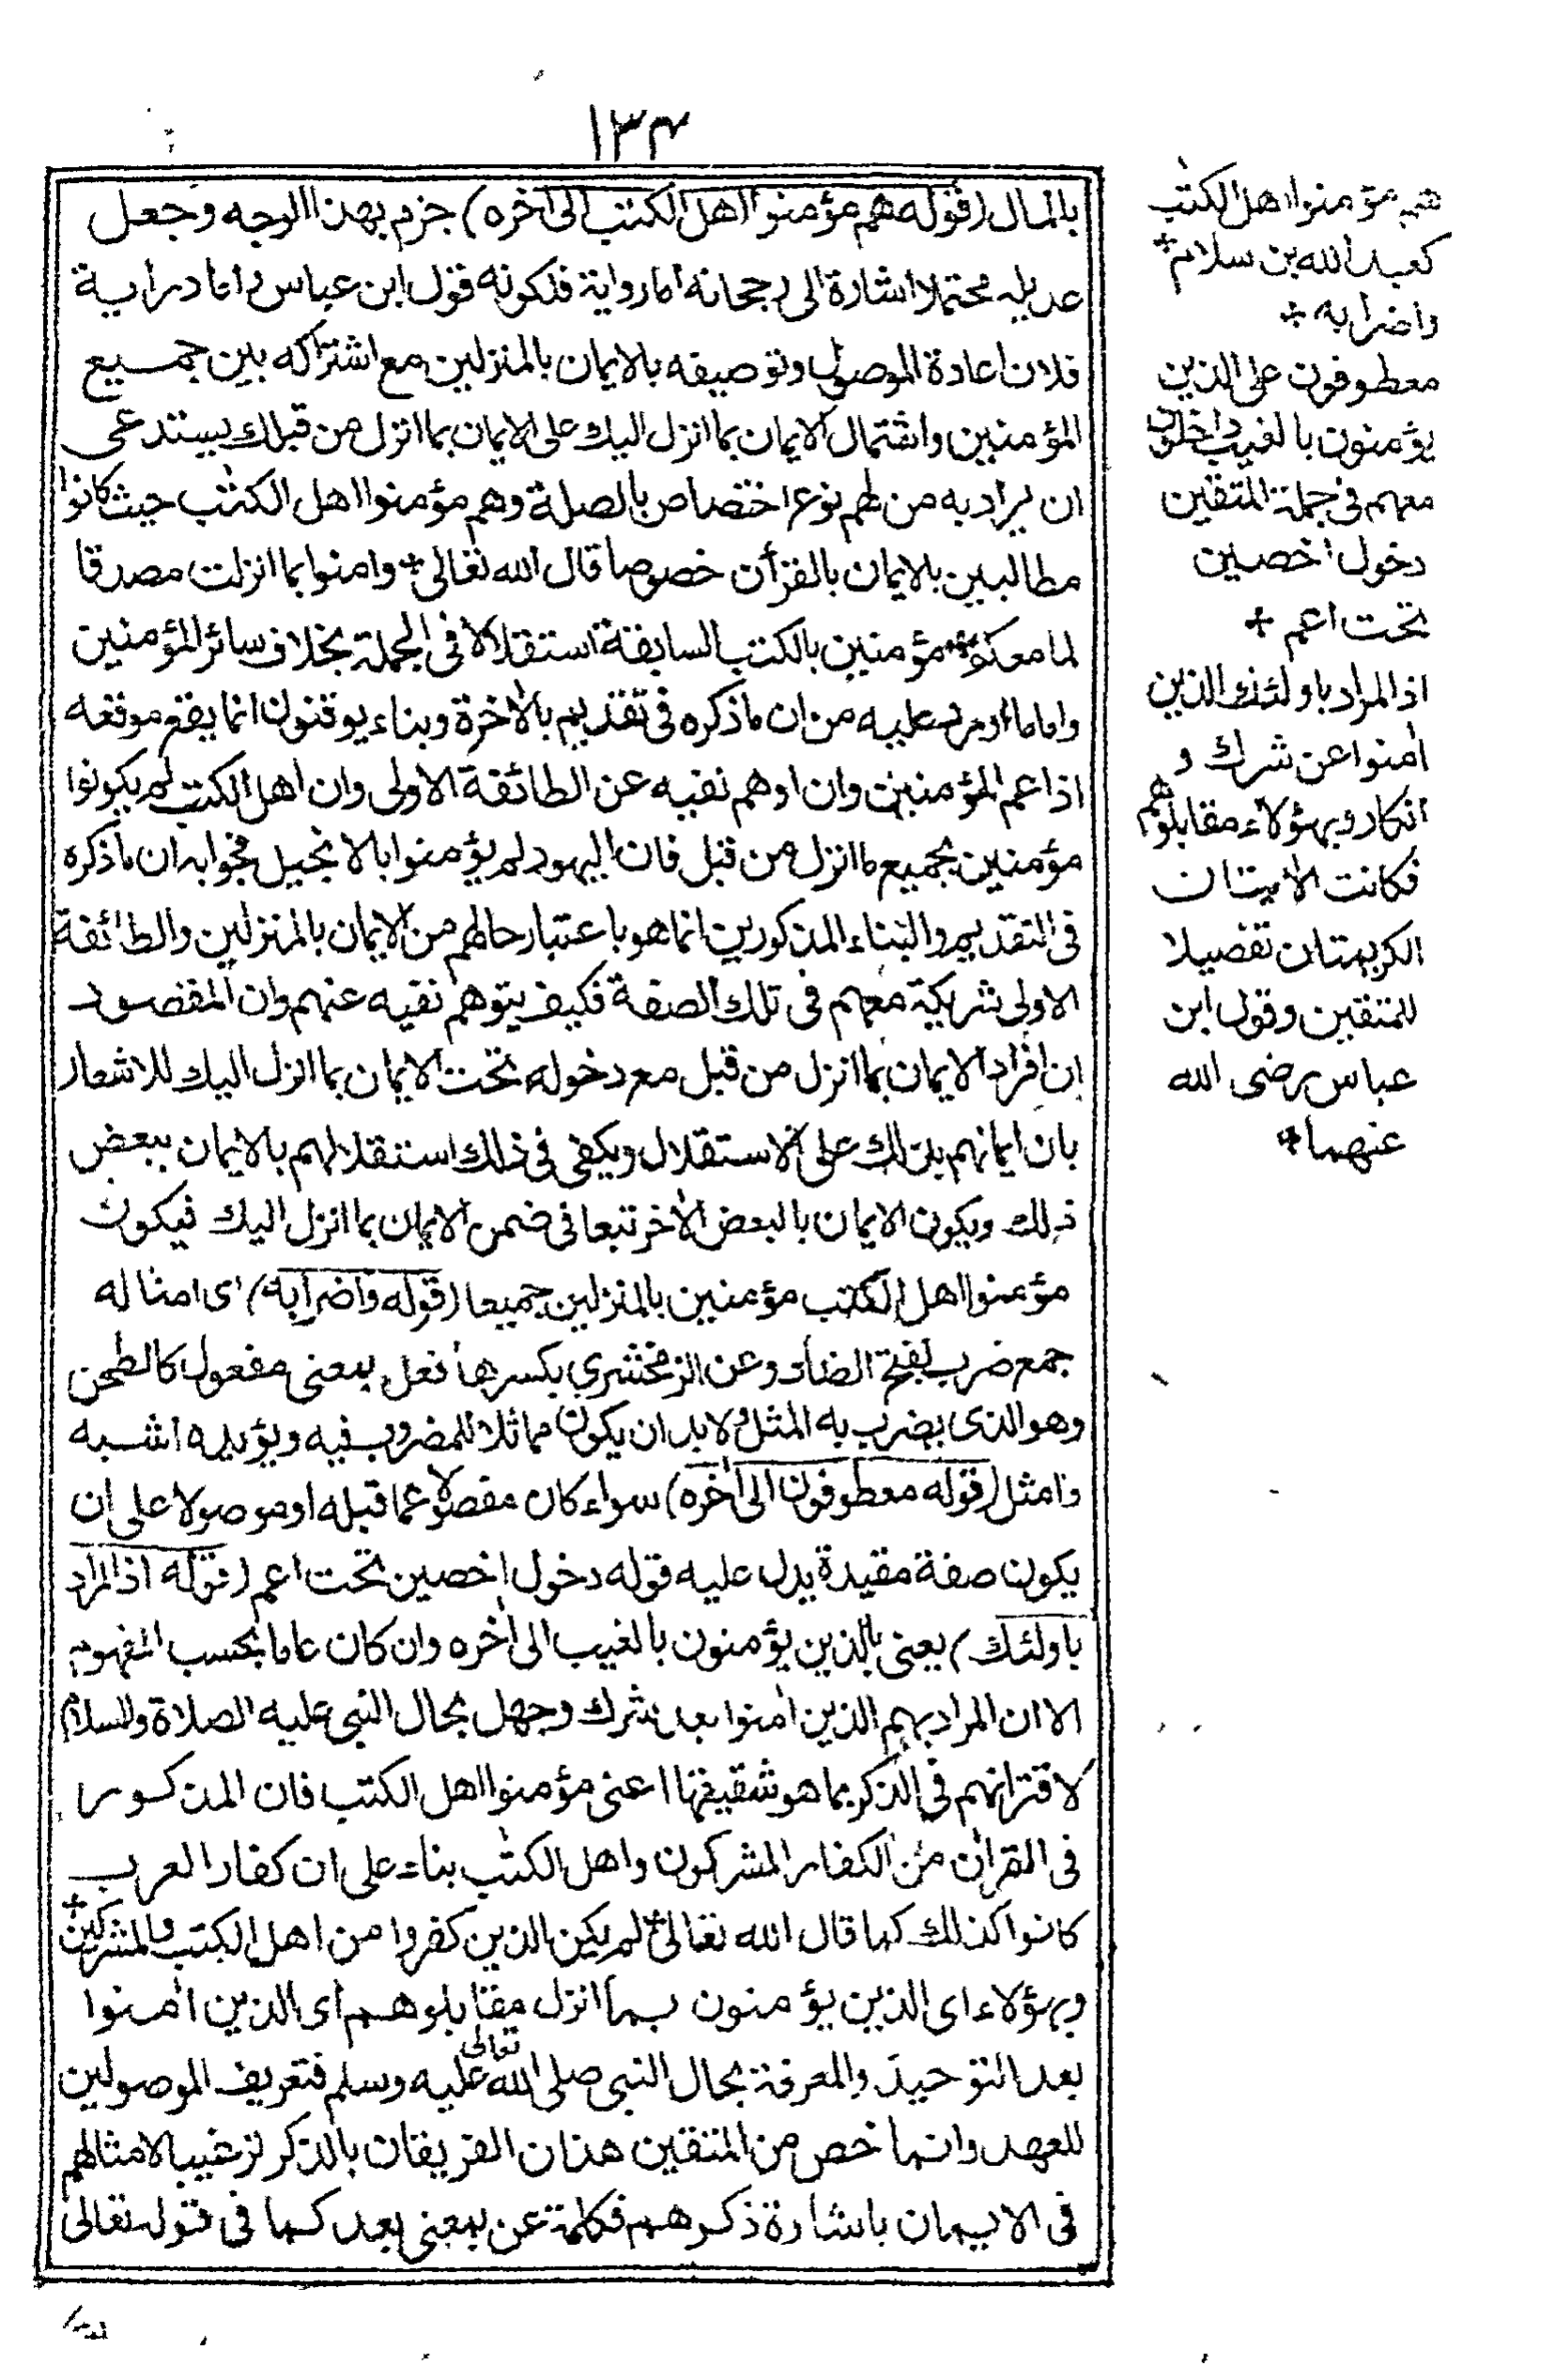 ١٣٤
بالمال (قوله هم مؤمنوا اهل الكتب الى اخره) جزم بهذا الوجه وجعل
عديله محتملا اشارة الى رجحانه اما رواية فلكونه قول ابن عباس واما دراية
فلان اعادة الموصول وتوصيفه بالايمان بالمنزلين مع اشتراكه بين جميع
المؤمنين واشتمال الايمان بما انزل اليك على الايمان بما انزل من قبلك يستدعى
ان يراد به من لهم نوع اختصاص بالصلة وهم مؤمنوا اهل الكتب حيث كانوا
مطالبين بالايمان بالقرأن خصوصا قال الله تعالى * وامنوا بما انزلت مصدقا
لما معكم * مؤمنين بالكتب السابقة استقلالا فى الجملة بخلاف سائر المؤمنين
واما ما اورد عليه من ان ما ذكره فى تقديم بالاخرة وبناء يوقنون انما يقع موقعه
اذا عم المؤمنين وان اوهم نفيه عن الطائفة الاولى وان اهل الكتب لم يكونوا
مؤمنين بجميع ما انزل من قبل فان اليهود لم يؤمنوا بالانجيل فجوابه ان ما ذكره
فى التقديم والبناء المذكورين انما هو باعتبار حالهم من الايمان بالمنزلين والطائفة
الاولى شريكة معهم فى تلك الصفة فكيف يتوهم نفيه عنهم وان المقصود
ان افراد الايمان بما انزل من قبل مع دخوله تحت الايمان بما انزل اليك للاشعار
بان ايمانهم بذلك على الاستقلال ويكفى فى ذلك استقلالهم بالايمان ببعض
ذلك ويكون الايمان بالبعض الاخر تبعا فى ضمن الايمان بما انزل اليك فيكون
مؤمنوا اهل الكتب مؤمنين بالمنزلين جميعا (قوله واضرابه) اى امثاله
جمع ضرب بفتح الضاد وعن الزمخشري بكسرها فعل بمعنى مفعول كالطحن
وهو الذى يضرب به المثل ولابد ان يكون مماثلا للمضروب فيه ويؤيده اشبه
وامثل (قوله معطوفون الى اخره) سواء كان مفصولا عما قبله او موصولا على ان
يكون صفة مقيدة يدل عليه قوله دخول اخصين تحت اعم (قوله اذ المراد
باولئك) يعنى بالذين يؤمنون بالغيب الى اخره وان كان عاما بحسب المفهوم
الا ان المراد بهم الذين امنوا بعد شرك وجهل بحال النبى عليه الصلاة والسلام
لاقترانهم فى الذكر بما هو شقيقها اعنى مؤمنوا اهل الكتب فان المذكور
فى القران من الكفار المشركون واهل الكتب بناء على ان كفار العرب
كانوا كذلك كما قال الله تعالى * لم يكن الذين كفروا من اهل الكتب والمشركين *
وبهؤلاء اى الذين يؤمنون بما انزل مقابلوهم اى الذين امنوا
بعد التوحيد والمعرفة بحال النبى صلى الله تعالى عليه وسلم فتعريف الموصولين
للعهد وانما خص من المتقين هذان الفريقان بالذكر ترغيبا لامثالهم
فى الايمان باشارة ذكرهم فكلمة عن بمعنى بعد كما فى قوله تعالى
هم مؤمنوا اهل الكتب
كعبد الله بن سلام *
واضرابه *
معطوفون على الذين
يؤمنون بالغيب داخلون
معهم فى جملة المتقين
دخول اخصين
تحت اعم *
اذ المراد باولئك الذين
امنوا عن شرك و
انكار وبهؤلاء مقابلوهم
فكانت الايتان
الكريمتان تفصيلا
للمتقين وقول ابن
عباس رضى الله
عنهما *